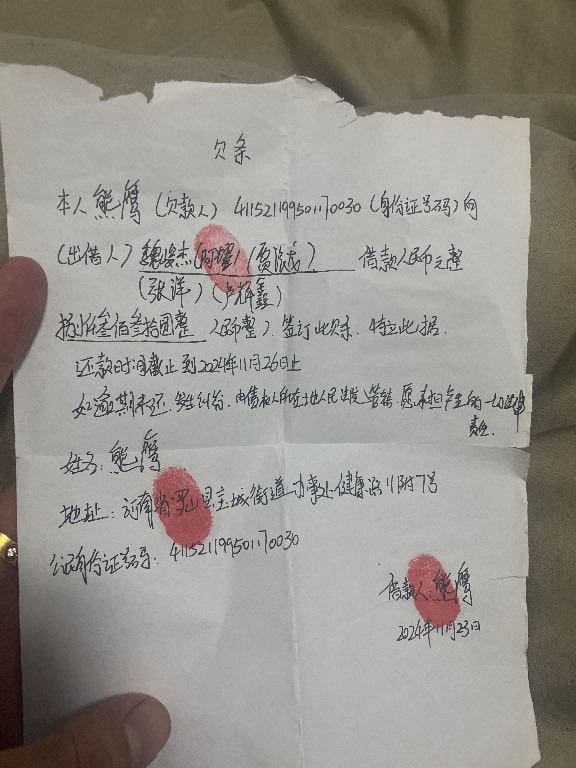 欠条
本人熊鹰(欠款人)411521199501170030(身份证号码)向
(出借人)魏俊杰(阿耀)(贾陈成) 借款人民币元整
(张洋)(卢梓鑫)
仟叁佰叁拾圆整(人民币整).签订此欠条.特立此据.
还款时间截止到2024年11月26日止
如逾期未还.发生纠纷.由债权人所在土地人民法院管辖.愿承担产生的一切法律
责任.
姓名:熊鹰
地址:河南省罗山县主城街道办事处健康路11附7号
公民身份证号码:411521199501170030
借款人:熊鹰
2024年11月23日